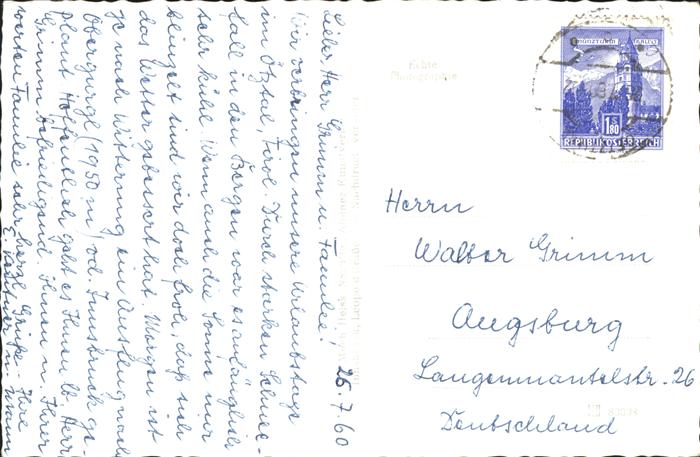 Lieber Herr Grimm u. Familie!
26.7.60
Wir verbringen unsere Urlaubstage
im Ötztal, Tirol. Durch starken Schnee-
fall in den Bergen war es anfänglich
sehr kühl. Wenn auch die Sonne nur
blinzelt sind wir doch froh, daß sich
das Wetter gebessert hat. Morgen ist
je nach Witterung ein Ausflug nach
Obergurgl (1950 m) od. Innsbruck ge-
plant. Hoffentlich geht es Ihnen lb. Herr
Grimm zufriedenstellend. Ihnen u. Ihrer
werten Familie sehr herzl. Grüße Ihre
Echte
Photographie
REPUBLIK ÖSTERREICH
1.80
Herrn
Walter Grimm
Augsburg
Langenmantelstr. 26
Deutschland